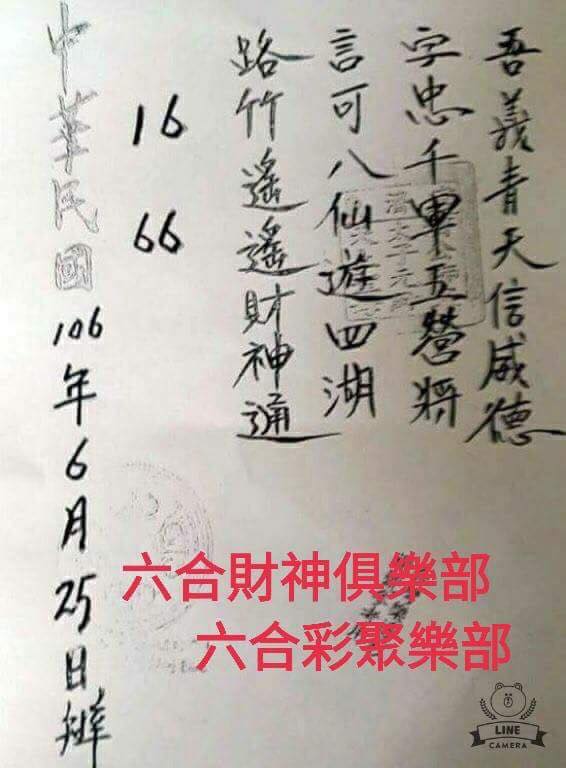 吾義青天信威德
字忠千軍五營將
言可八仙遊四湖
路竹遙遙財神通
16
66
中華民國106年6月25日辦
六合財神俱樂部
六合彩聚樂部
LINE
CAMERA